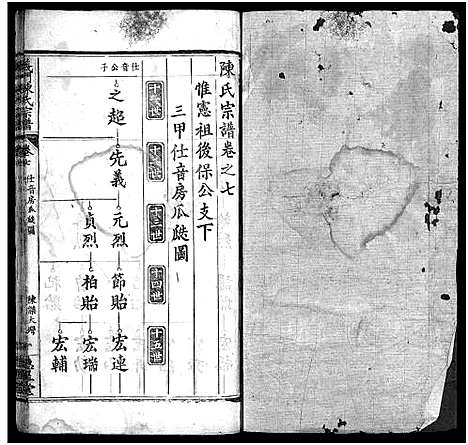 陳氏宗譜卷之七
惟憲祖後保公支下
三甲仕音房瓜瓞圖
十一世
十二世
十三世
十四世
十五世
仕音公子
之超
先義
元烈
節貽
宏連
貞烈
柏貽
宏瑞
宏輔
陳氏宗譜
仕音房瓜瓞圖